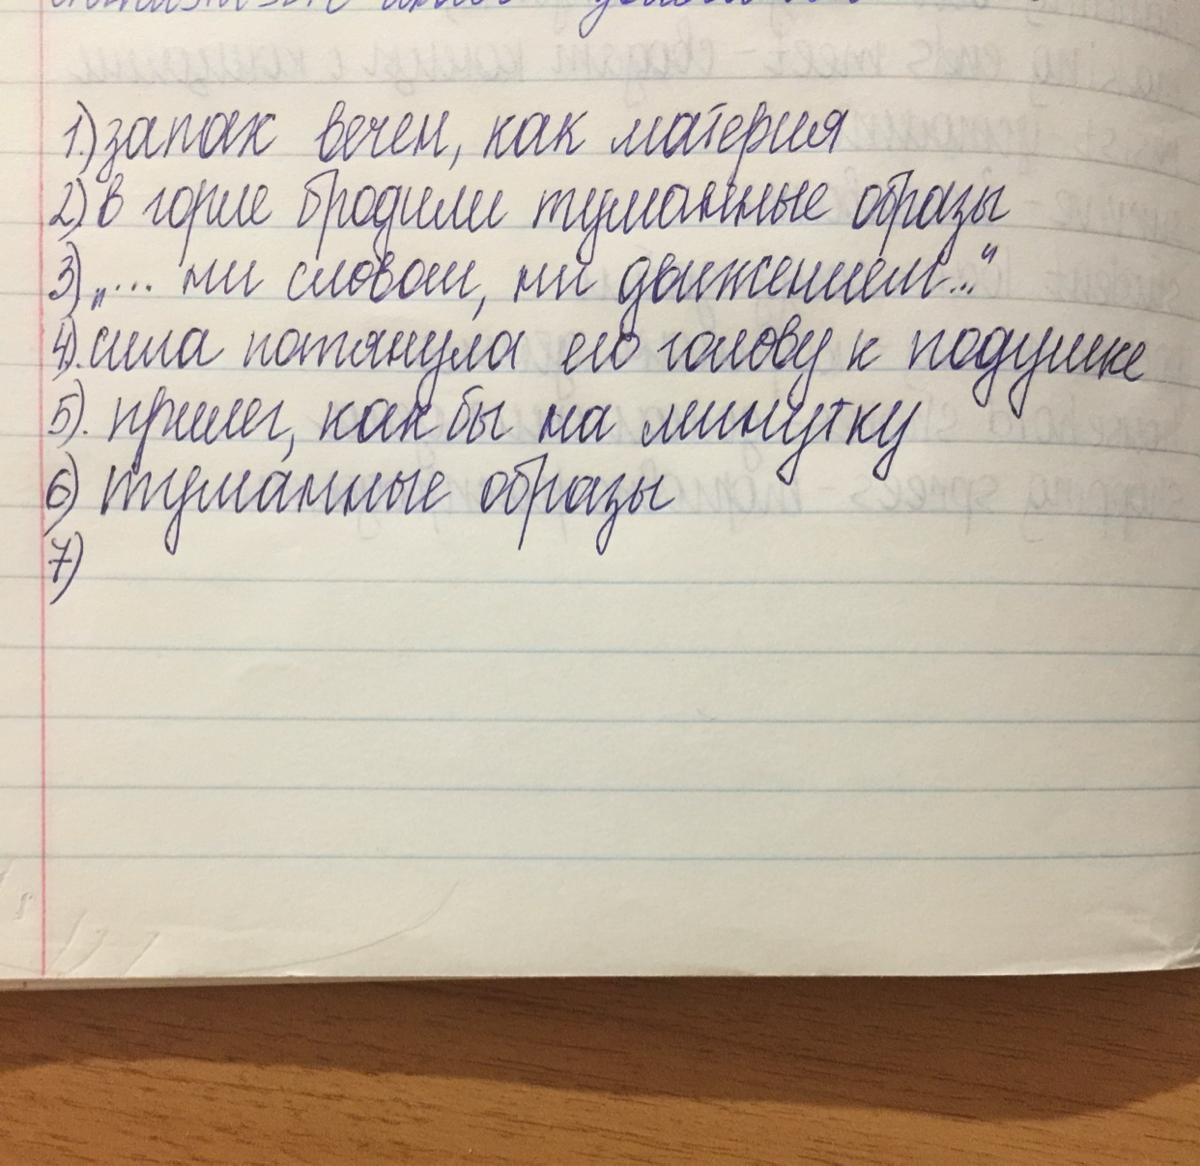 1.) запах вечен, как материя
2) в горле бродили туманные образы
3) „... ни словом, ни движением..."
4). сила потянула его голову к подушке
5). прилег, как бы на минутку
6) туманные образы
7)